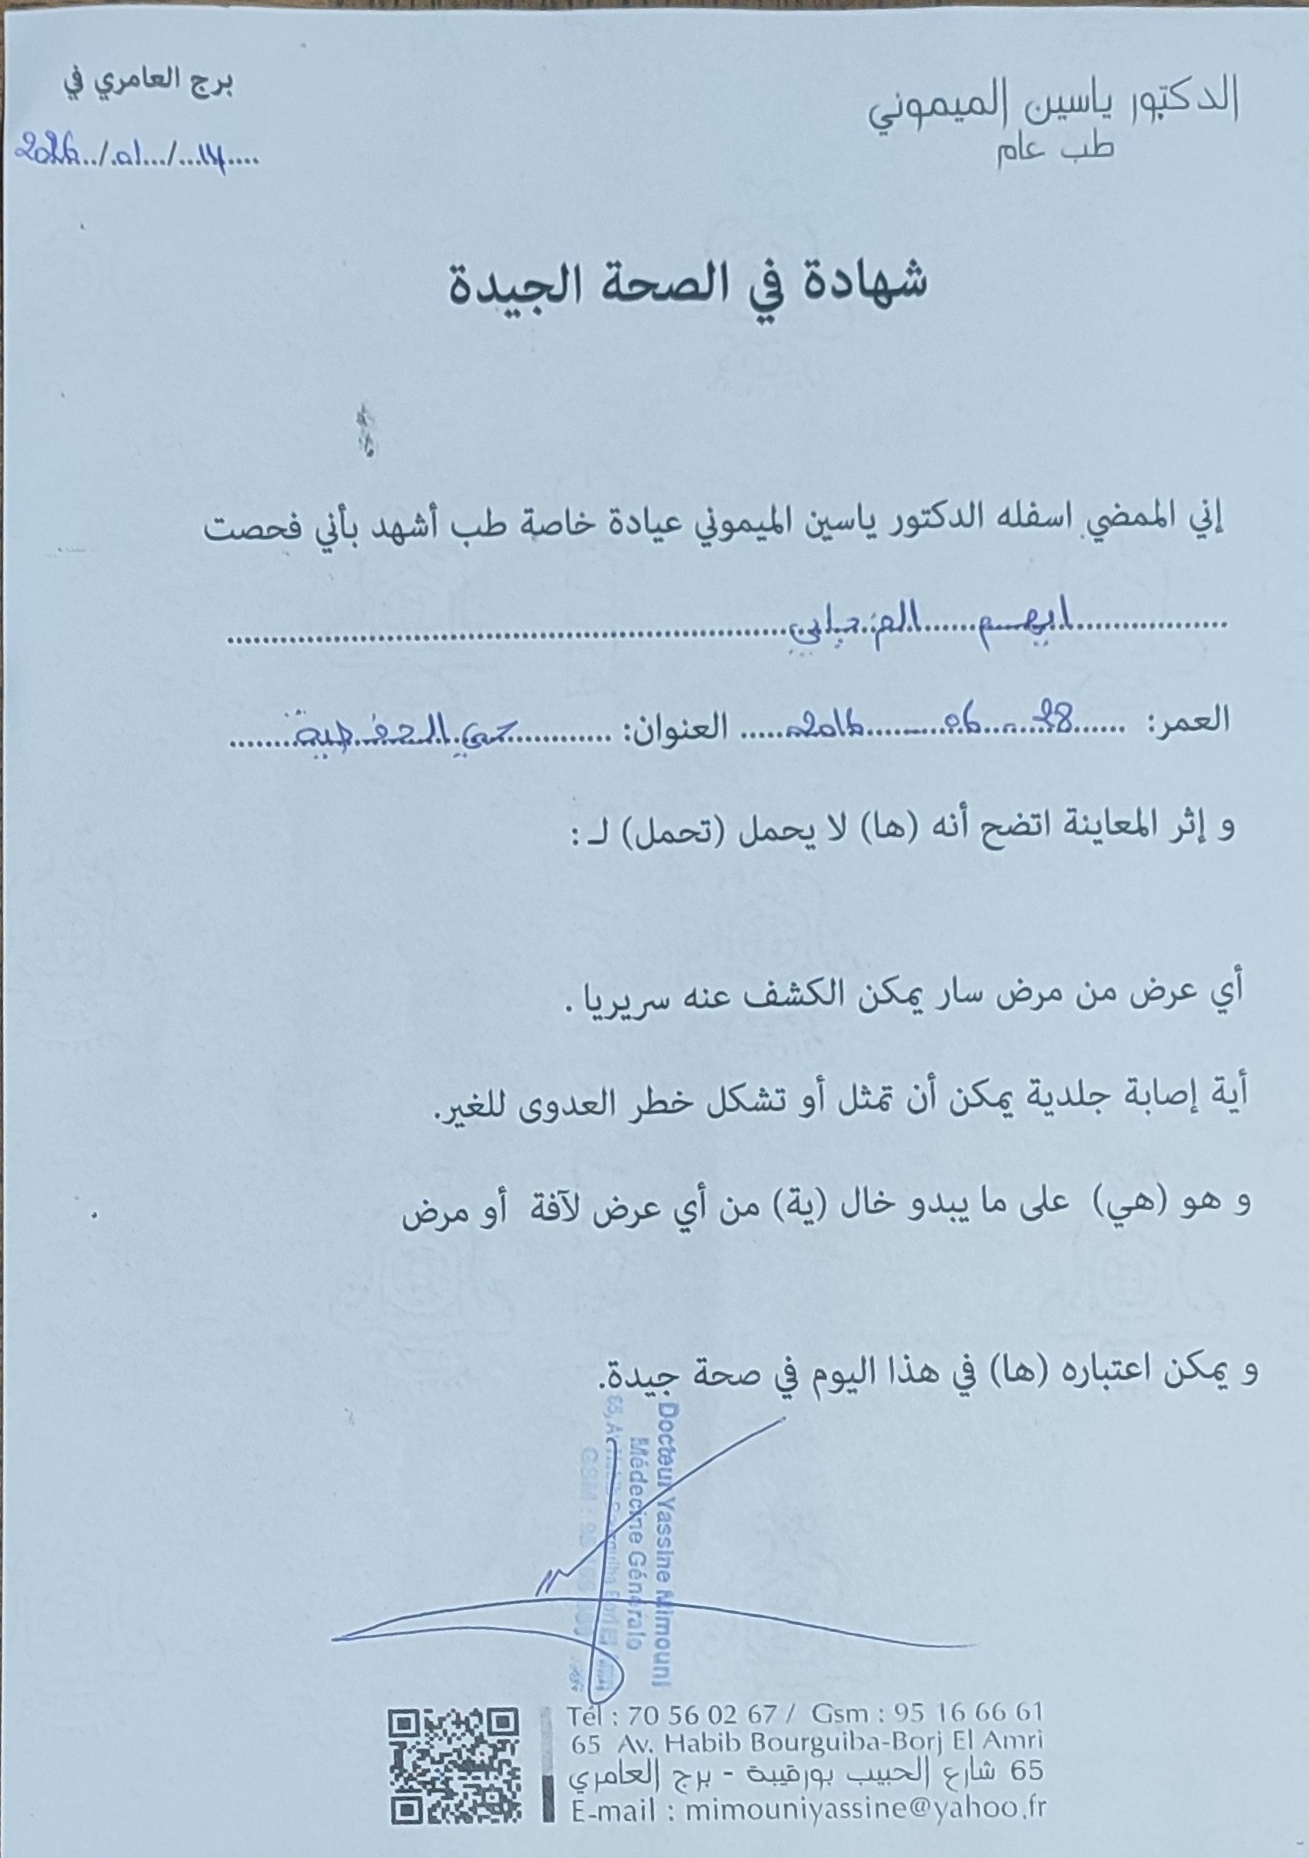 الدكتور ياسين الميموني
طب عام
برج العامري في
14/01/2026
شهادة في الصحة الجيدة
إني الممضي اسفله الدكتور ياسين الميموني عيادة خاصة طب أشهد بأني فحصت
العمر: 28 06 2016 العنوان: حي
و إثر المعاينة اتضح أنه (ها) لا يحمل (تحمل) لـ :
أي عرض من مرض سار يمكن الكشف عنه سريريا .
أية إصابة جلدية يمكن أن تمثل أو تشكل خطر العدوى للغير.
و هو (هي) على ما يبدو خال (ية) من أي عرض لآفة أو مرض
و يمكن اعتباره (ها) في هذا اليوم في صحة جيدة.
Docteur Yassine Mimouni
Médecine Générale
Tél : 70 56 02 67 / Gsm : 95 16 66 61
65 Av. Habib Bourguiba-Borj El Amri
65 شارع الحبيب بورقيبة - برج العامري
E-mail : mimouniyassine@yahoo.fr